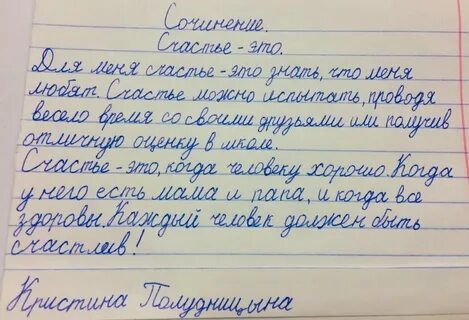 Сочинение.
Счастье - это.
Для меня счастье - это знать, что меня
любят. Счастье можно испытать, проводя
весело время со своими друзьями или получив
отличную оценку в школе.
Счастье - это, когда человеку хорошо. Когда
у него есть мама и папа, и когда все
здоровы. Каждый человек должен быть
счастлив!
Кристина Полудницына